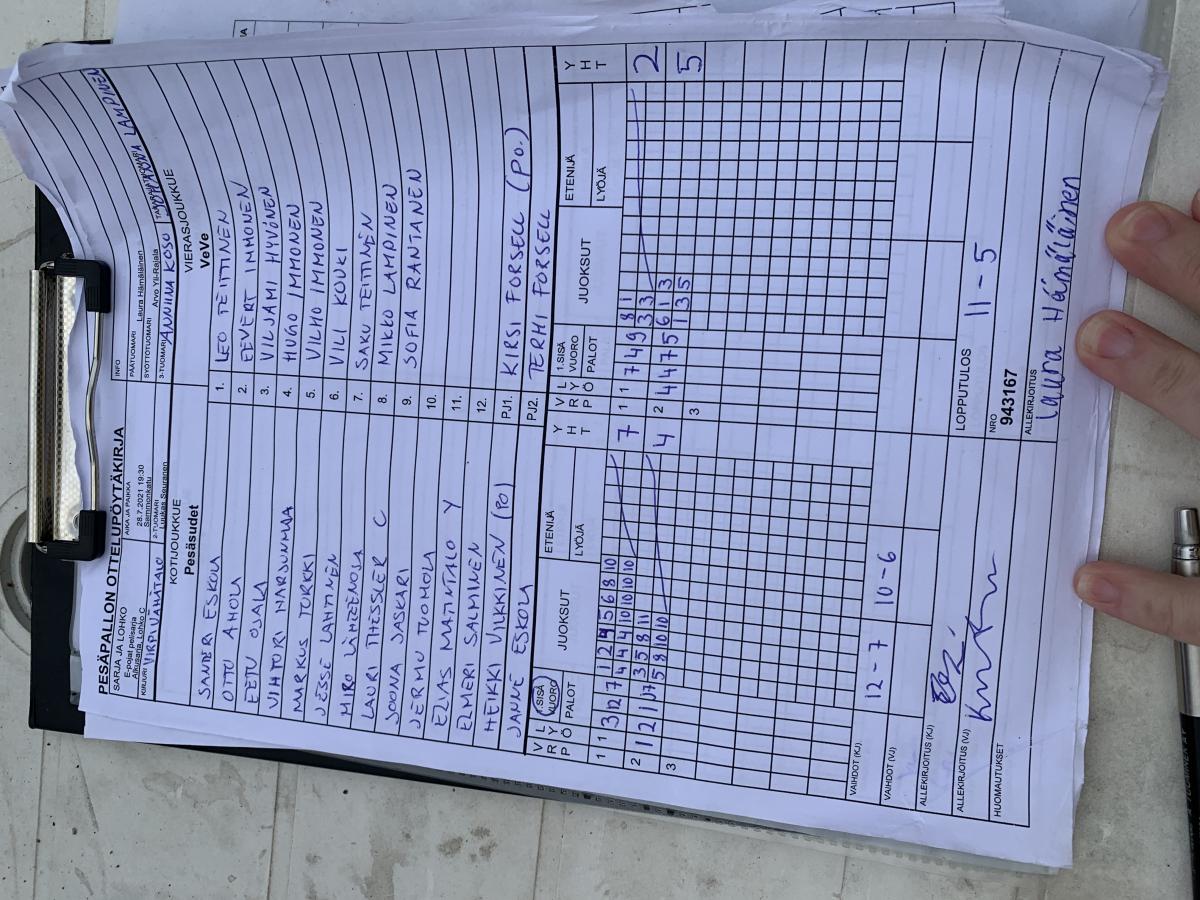 PESÄPALLON OTTELUPÖYTÄKIRJA
SARJA JA LOHKO
E-pojat pelisarja
Alkusarja, Lohko C
AIKA JA PAIKKA
28.7.2021 19:30
Sammonkatu
INFO
PÄÄTUOMARI
Laura Hämäläinen
KIRJURI
VIRPI VÄHÄTALO
2-TUOMARI
Luukas Seuranen
SYÖTTÖTUOMARI
Arvo Yli-Rajala
3-TUOMARI
ANNIINA KOSO
LAMPINEN
KOTIJOUKKUE
VIERASJOUKKUE
Pesäsudet
VeVe
SANTERI ESKOLA 1. LEO TEITTINEN
OTTO AHOLA 2. EEVERT IMMONEN
EETU OJALA 3. VILJAMI HYVÖNEN
VIHTORI HARJUNMAA 4. HUGO IMMONEN
MARKUS TORKKI 5. VILHO IMMONEN
JESSE LAHTINEN 6. VILI KOUKI
MIRO LÄHTEENOJA 7. SAKU TEITTINEN
LAURI THESSLER C 8. MIKKO LAMPINEN
JOONA JASKARI 9. SOFIA RANTANEN
JERMU TUOMOLA 10.
ELIAS MATINTALO Y 11.
ELMERI SALMINEN 12.
HEIKKI VILKKINEN (PO) PJ1. KIRSI FORSELL (PO.)
JANNE ESKOLA PJ2. TERHI FORSELL
V R P L Y Ö 1.SISÄ VUORO PALOT JUOKSUT ETENIJÄ LYÖJÄ Y H T V R P L Y Ö 1.SISÄ VUORO PALOT JUOKSUT ETENIJÄ LYÖJÄ Y H T
1 1 3 12 7 1 2 4 5 6 8 10 7 1 1 7 4 9 8 1 2
4 4 4 10 10 10 10 3 3
2 1 2 1 17 3 5 8 11 4 2 4 4 7 5 6 1 3 5
5 8 10 10 1 3 5
3 3
VAIHDOT (KJ)
12-7 10-6
VAIHDOT (VJ)
ALLEKIRJOITUS (KJ)
LOPPUTULOS 11-5
ALLEKIRJOITUS (VJ)
NRO
943167
HUOMAUTUKSET
ALLEKIRJOITUS
Laura Hämäläinen